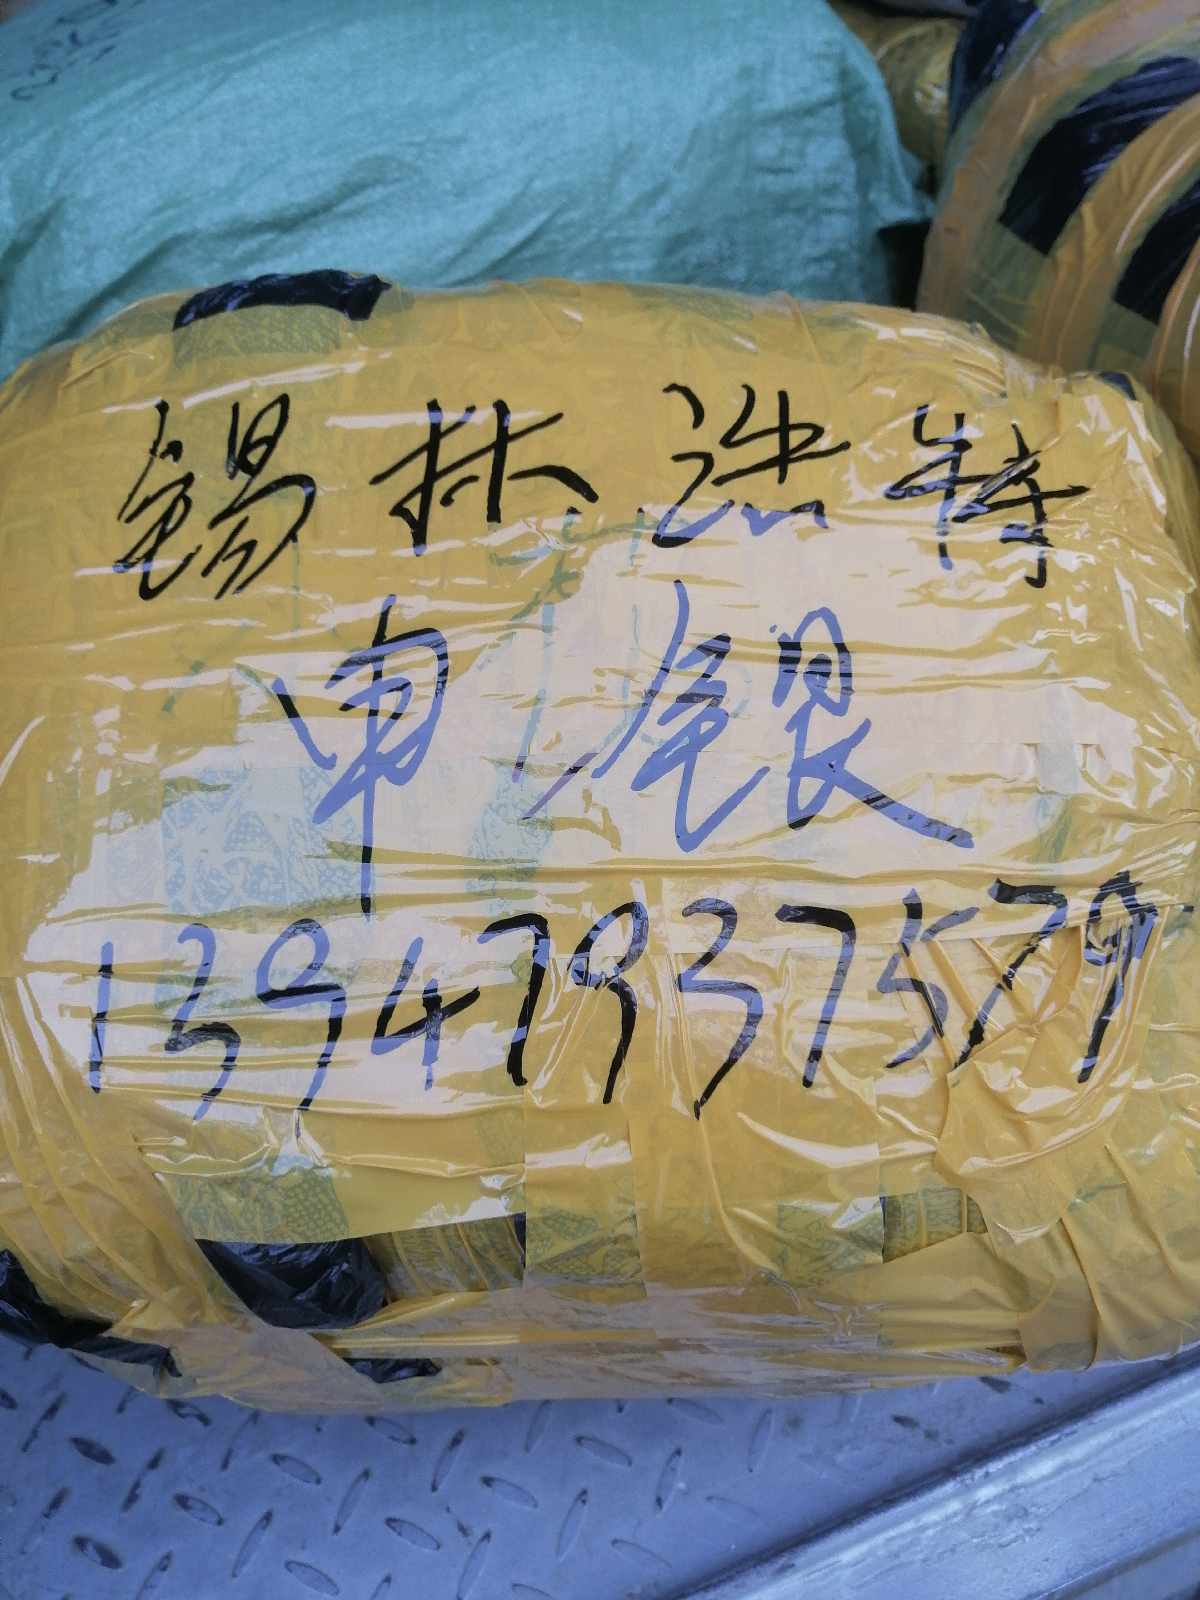 锡林浩特
申银
13947937579